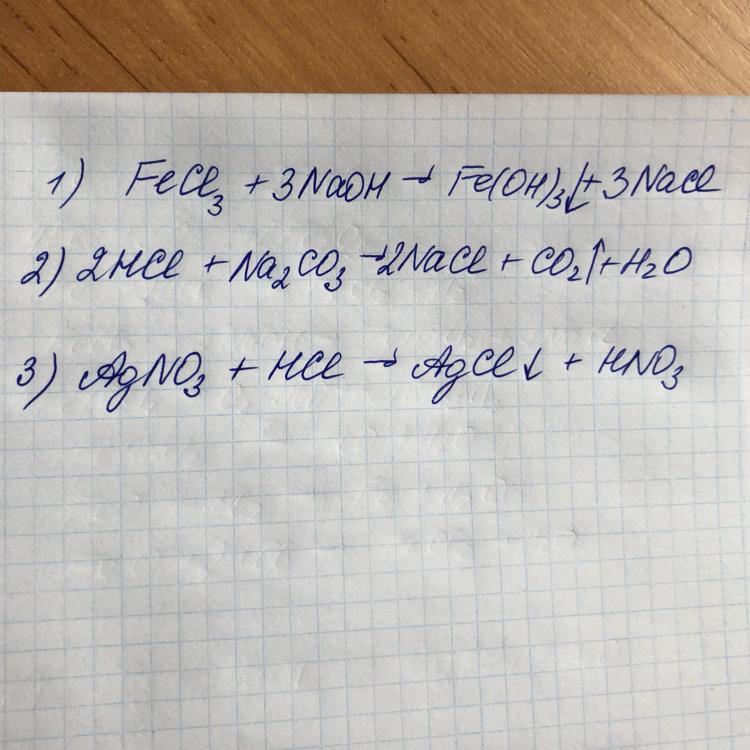 1) FeCl₃ + 3NaOH → Fe(OH)₃↓ + 3NaCl
2) 2HCl + Na₂CO₃ → 2NaCl + CO₂↑ + H₂O
3) AgNO₃ + HCl → AgCl↓ + HNO₃